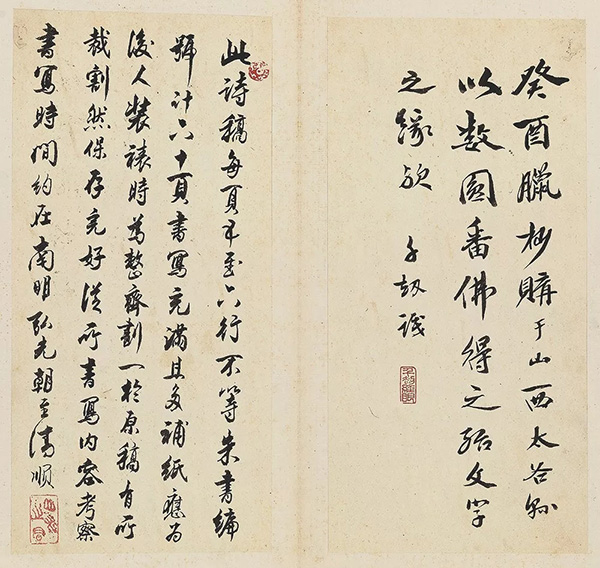 癸酉臘杪購于山西太谷縣
以数圆番佛得之殆文字
之緣欤
千劫識
此詩稿每頁五至六行不等朱書編
號計六十頁書寫充滿且多補紙應为
後人裝裱時為整齊劃一於原稿有所
裁割然保存完好從所書寫内容考察
書寫時間約在南明弘光朝至清順